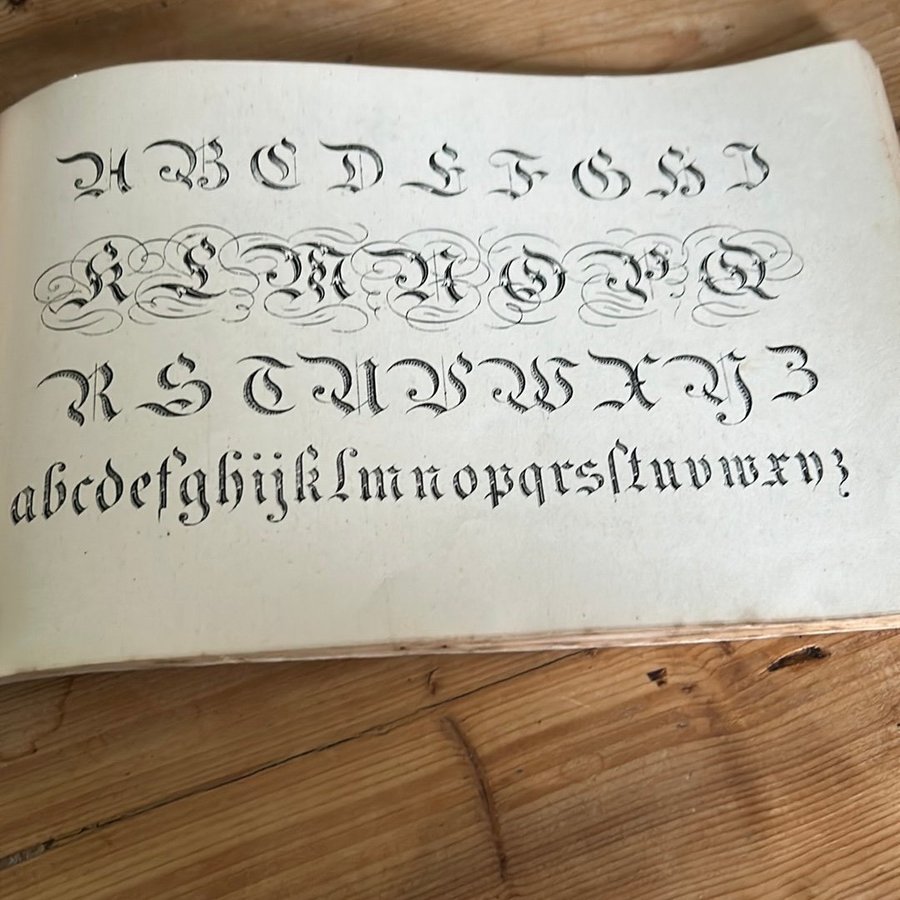 A B C D E F G H I
K L M N O P Q
R S T U V W X Y Z
abcdefghijklmnopqrsſtuvwxyz